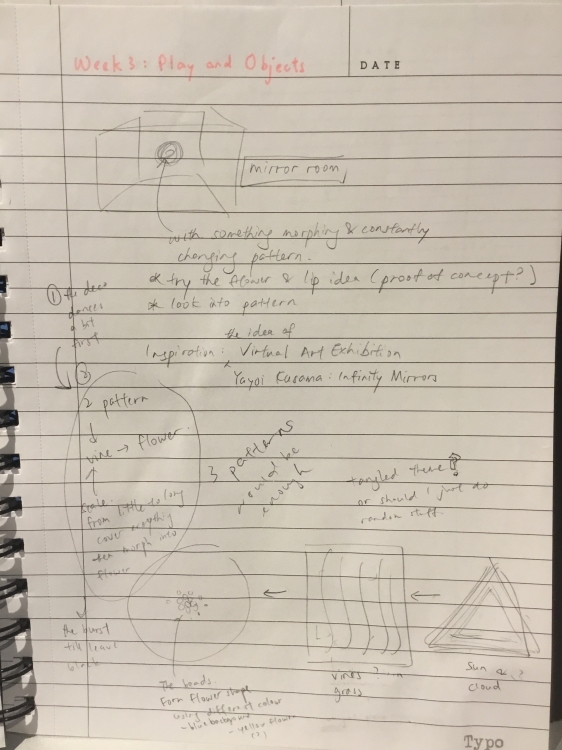 Week 3: Play and Objects
DATE
mirror room
with something morphing & constantly
changing pattern.
* try the flower & lip idea (proof of concept?)
* look into pattern
① the deer
dances
a bit
first
the idea of
Inspiration: Virtual Art Exhibition
Yayoi Kusama: Infinity Mirrors
②
2 pattern
vine → flower.
scale:
from little to long
cover everything
then morph into
flower
3 patterns
would be
enough
tangled theme?
or should I just do
random stuff.
the burst
till leave
blank
The beads
form flower shape
using different colour
- blue background
- yellow flower
(?)
vines?
grass
sun & ?
cloud
Typo